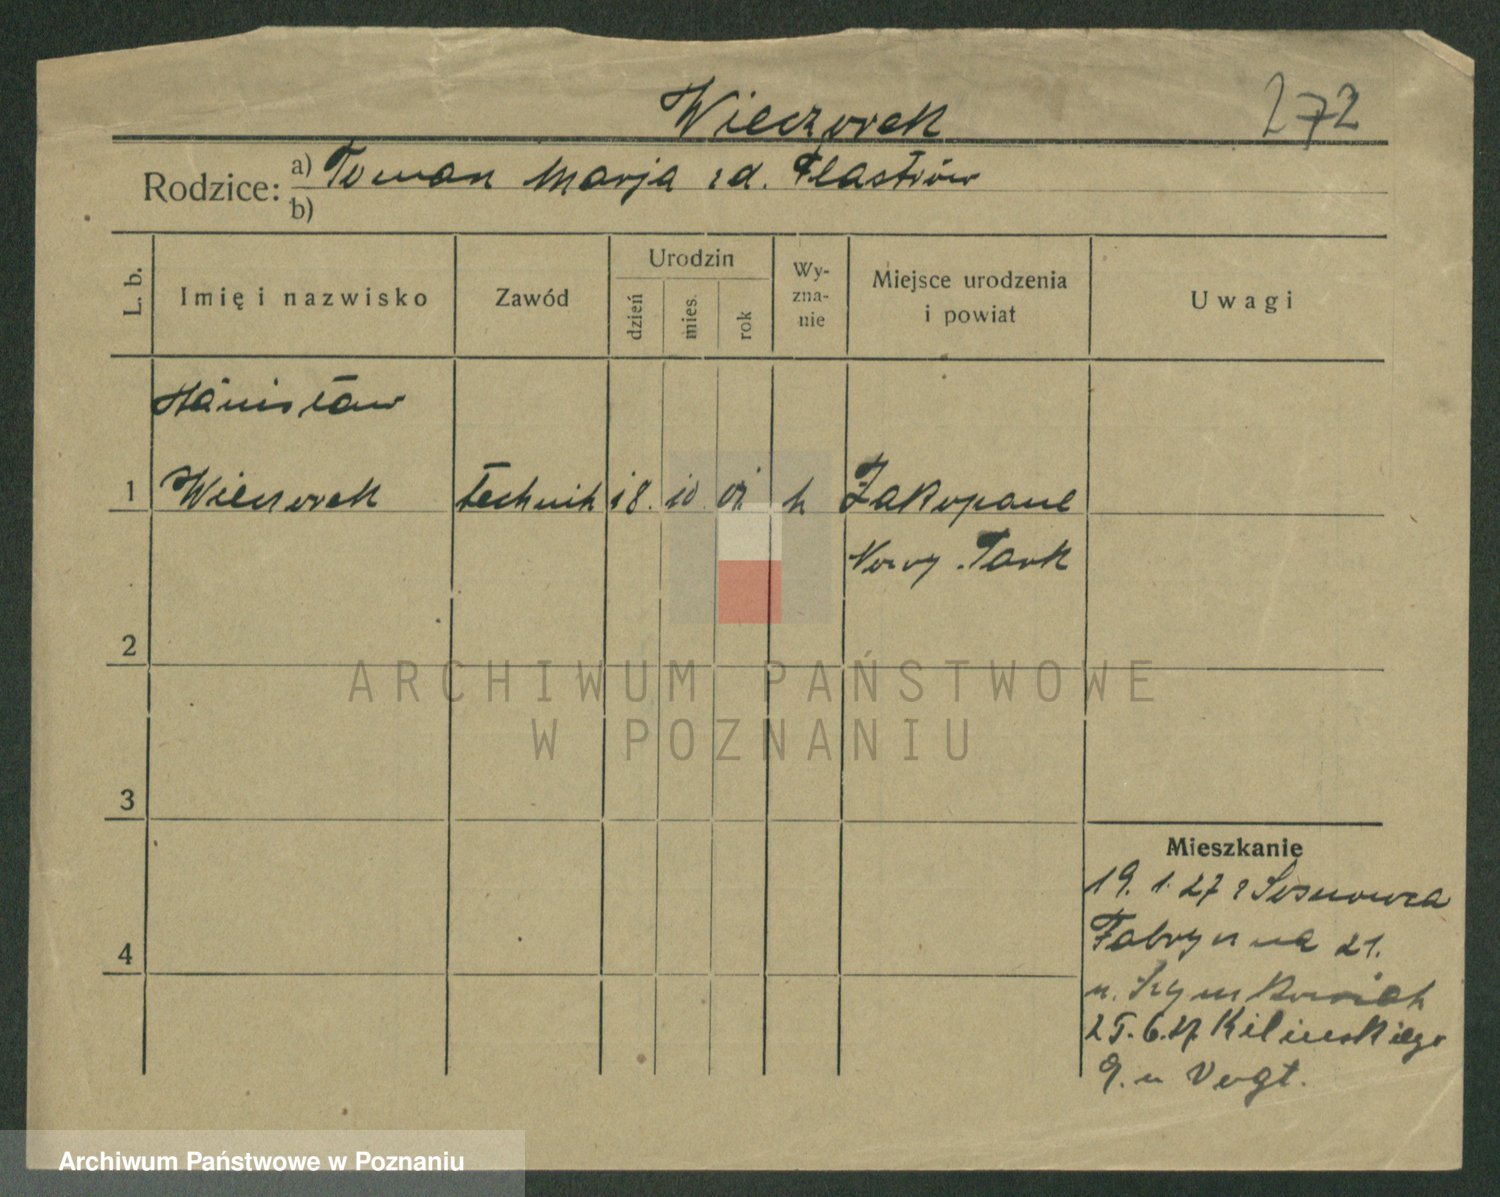 Wieczorek
272
Rodzice: a) Toman Marja zd. Plastrów
b)
L. b.
Imię i nazwisko
Zawód
Urodzin
dzień
mies.
rok
Wy-
zna-
nie
Miejsce urodzenia
i powiat
Uwagi
Stanisław
1 Wieczorek technik 18. 10 01 k Zakopane
Nowy .Tark
2
ARCHIWUM PAŃSTWOWE
W POZNANIU
3
Mieszkanie
19. 1. 27 z Sosnowca
Fabryczna 21.
u. Szymkowiak
25. 6. 27 Kilinskiego
9. u Vogt.
4
Archiwum Państwowe w Poznaniu